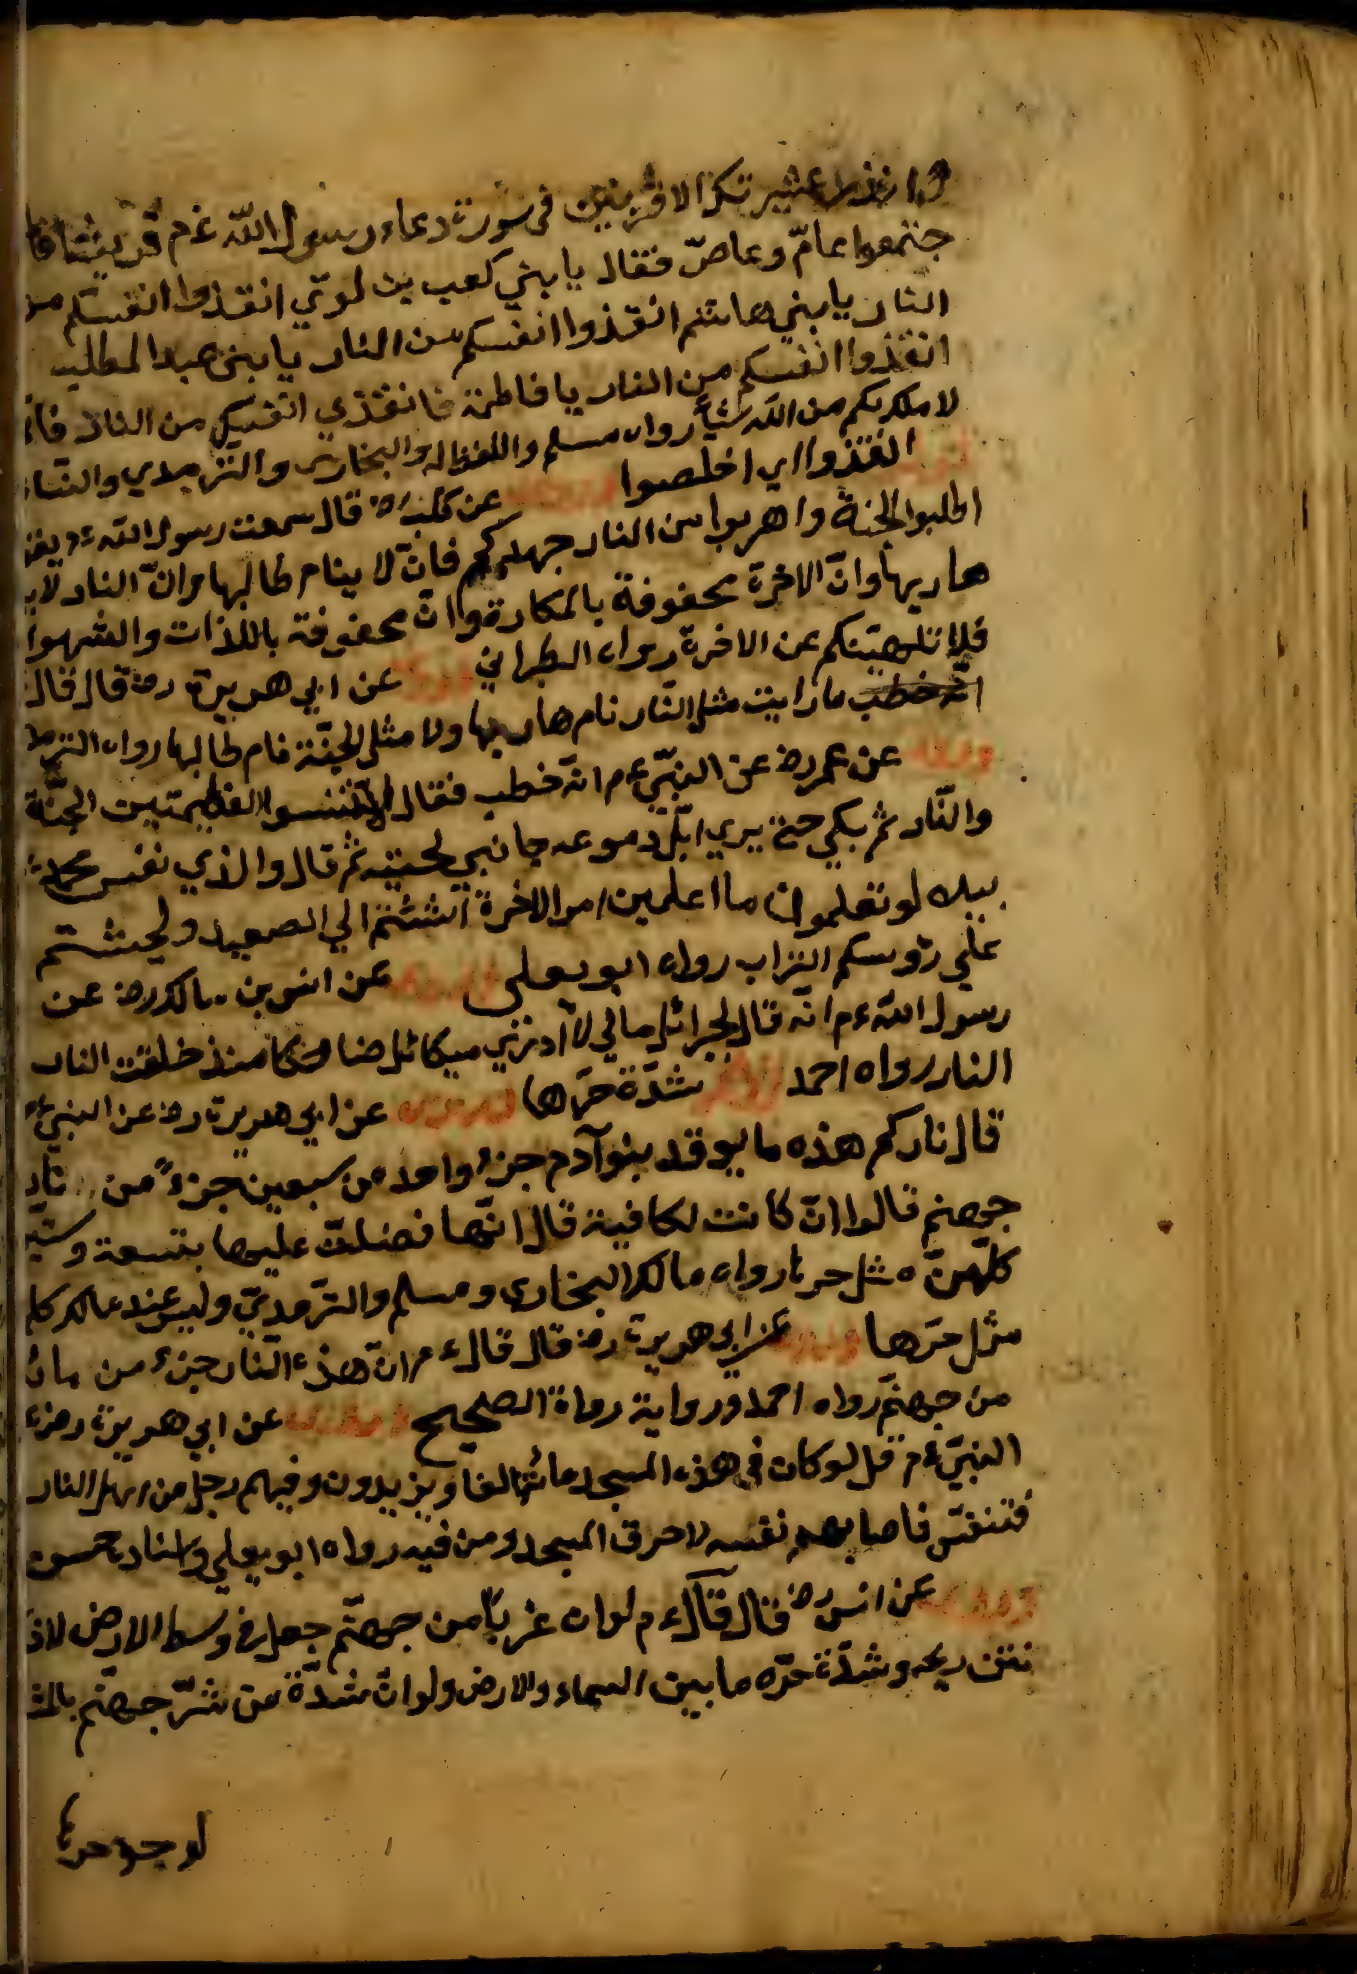 وانذر عشيرتك الاقربين في سورة دعاء رسول الله عم قريشا فا
جتمعوا عامّ وعاصّ فقال يا بني كعب بن لوي انقذوا انفسكم من
النار يا بني هاشم انقذوا انفسكم من النار يا بني عبد المطلب
انقذوا انفسكم من النار يا فاطمة فانقذي انفسكي من النار فان
لا ملك لكم من الله شيأ رواه مسلم واللفظ له والبخاري والترمدي والنسا
انقذوا اي اخلصوا عن كليب رض قال سمعت رسول الله ءم يقو
اطلبوا الجنة واهربوا من النار جهدكم فانّ لا ينام طالبها وانّ النار لا ي
هاربها وانّ الاخرة محفوفة بالمكارة وانّ محفوفة باللذات والشهوا
فلا تلهينكم عن الاخرة رواه الطبراني عن ابي هريرة رض قال قال
انّه خطب ما رايت مثل النار نام هاربها ولا مثل الجنّة نام طالبها رواه الترمذ
عن عمر رض عن النبي ءم انّه خطب فقال لا تنسوا العظيمتين الجنّة
والنّار ثم بكي حتي يري ابلّ دموعه جانبي لحيته ثم قال والذي نفس محمد
بيده لو تعلمون ما اعلم من امر الاخرة لمشيتم الي الصعيد ولحثيتم
علي رؤسكم التراب رواه ابو يعلى عن انس بن مالك رض عن
رسول الله ءم انّه قال لجبرائل مالي لا أر ميكائل ضاحكا منذ خلقت النار
النار رواه احمد شدّة حرّها عن ابي هريرة رض عن النبي ء
قال ناركم هذه ما يوقد بنوآدم جزء واحد من سبعين جزءً من نار
جهنم قالوا انّ كانت لكافية قال انّها فضلت عليها بتسعة وستي
كلّهنّ مثل حرها رواه مالك البخاري ومسلم والترمديّ وليس عند مالك كل
مثل حرّها عن ابي هريرة رض قال قال ءم انّ هذه النار جزء من مائ
من جهنّم رواه احمد ورواية رواة الصحيح عن ابي هريرة رض ء
النبيّ ءم قل لو كان في هذه المسجد مائة الفا ويزيدون وفيهم رجل من اهل النار
فتنفّس فاصابهم نفسه لاحرق المسجد ومن فيه رواه ابو يعلي واسناد حسن
عن انس رض قال قال ءم لو ان غربا من جهنّم جعل في وسط الارض لاذ
نتن ريحه وشدّة حرّه ما بين السماء والارض ولو انّ شدّة من شرّ جهنّم بالمش
لوجد حرها